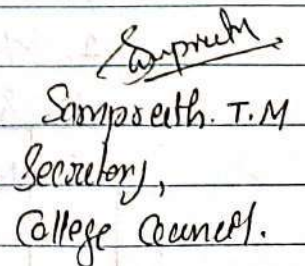 Sampreeth
Sampreeth. T.M
Secretary,
College Council.